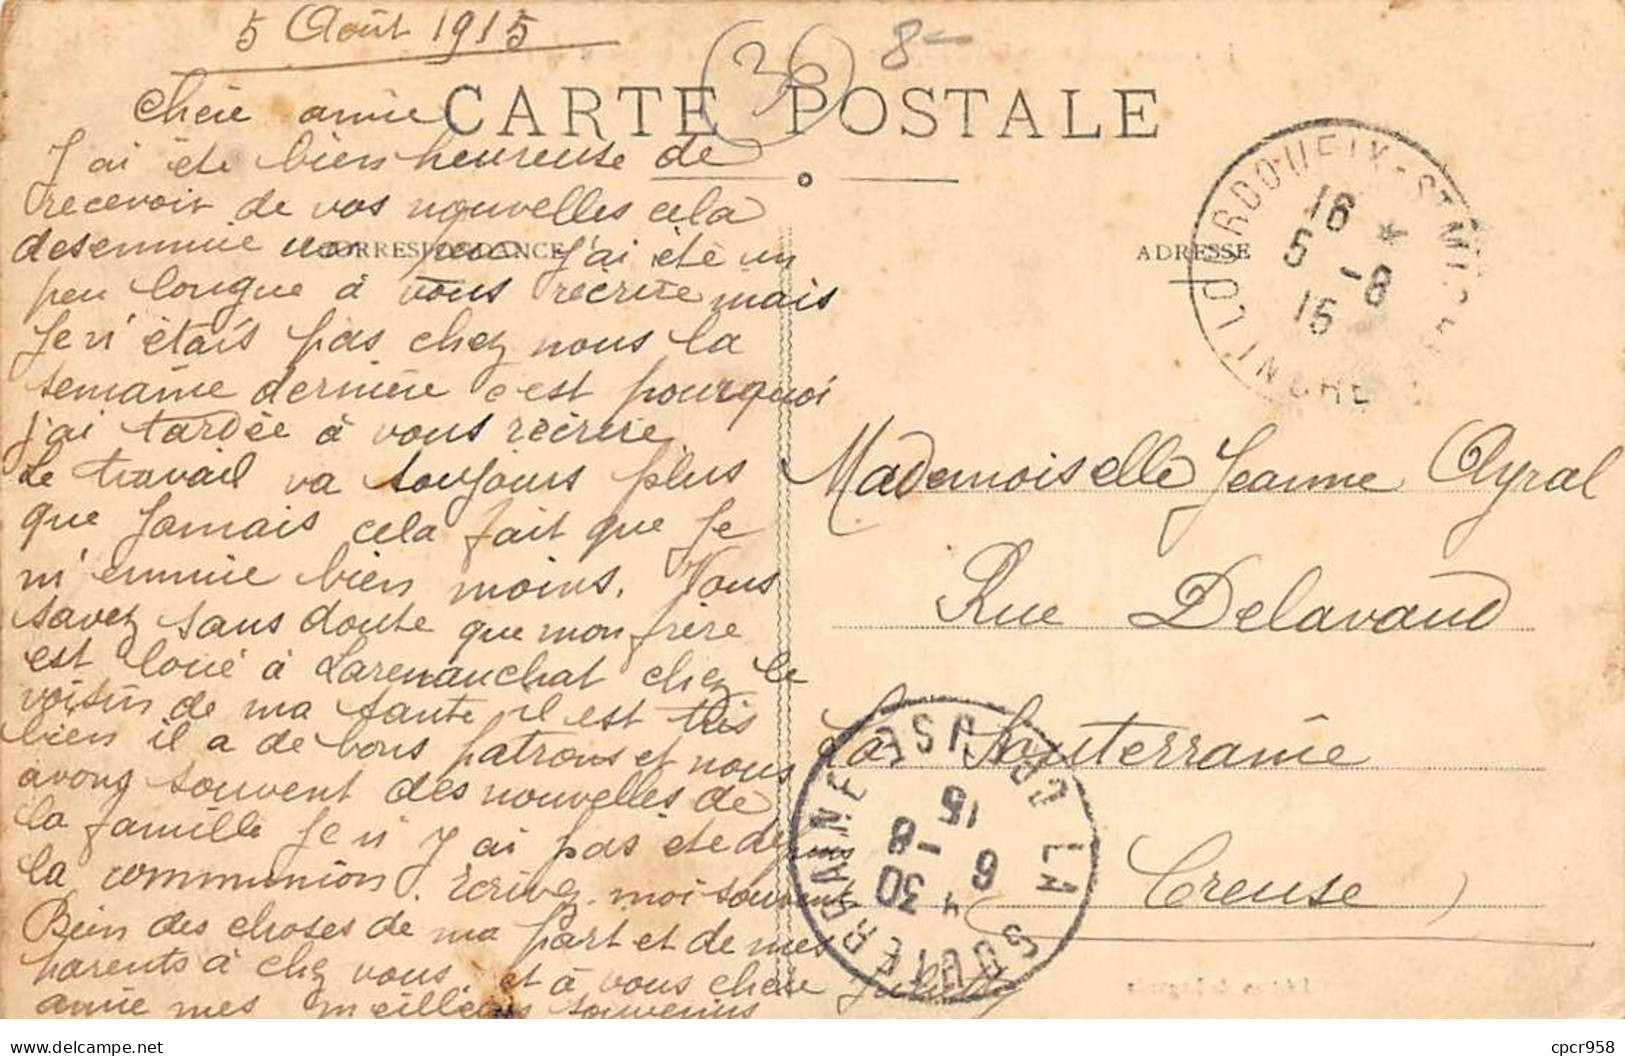 5 Août 1915
30
8-
CARTE POSTALE
Chère amie
J'ai été bien heureuse de
recevoir de vos nouvelles cela
desennuie un peu J'ai été un
CORRESPONDANCE
peu longue à vous récrire mais
Je n'étais pas chez nous la
semaine dernière c'est pourquoi
j'ai tardée à vous récrire.
Le travail va toujours plus
que Jamais cela fait que Je
m'ennuie bien moins. Vous
savez sans doute que mon frère
est loué à Larenauchat chez le
voisin de ma tante il est très
bien il a de bons patrons et nous
avons souvent des nouvelles de
la famille Je n'y ai pas été depuis
la communion. Ecrivez-moi souvent
Bien des choses de ma part et de mes
parents à chez vous et à vous chère
amie mes meilleurs souvenirs
Juliette
ADRESSE
LOURDOUEIX-ST MICHEL
INDRE
16
5 -8
15
Mademoiselle Jeanne Ayral
Rue Delavaud
La Souterraine
(Creuse)
LA SOUTERRAINE
CREUSE
4 30
6 -8
15
cpcr958